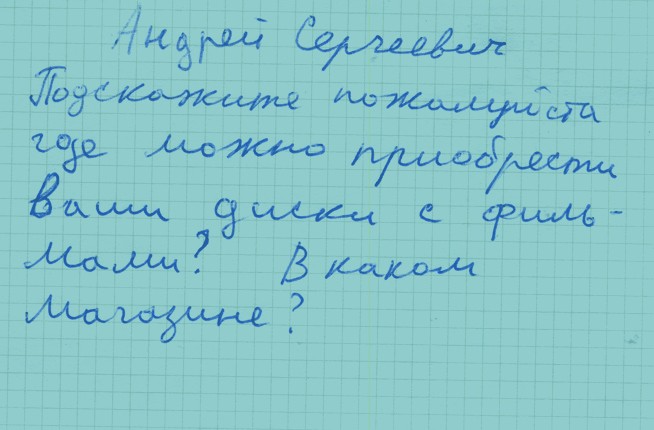 Андрей Сергеевич
Подскажите пожалуйста
где можно приобрести
ваши диски с филь-
мами? В каком
магазине?